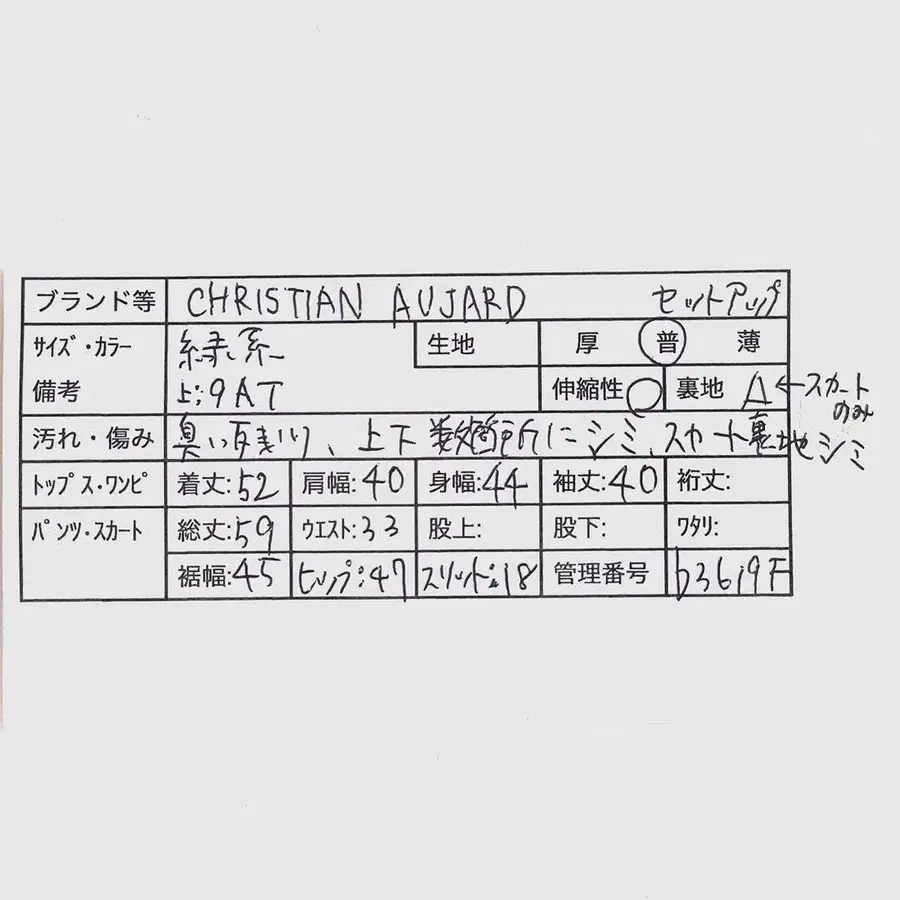 ブランド等 CHRISTIAN AUJARD セットアップ
サイズ・カラー 緑系 生地 厚 普 薄
備考 上:9AT 伸縮性 ○ 裏地 △ ←スカート
のみ
汚れ・傷み 臭い有り、上下数箇所にシミ、スカート裏地シミ
トップス・ワンピ 着丈:52 肩幅:40 身幅:44 袖丈:40 裄丈:
パンツ・スカート 総丈:59 ウエスト:33 股上: 股下: ワタリ:
裾幅:45 ヒップ:47 スリット:18 管理番号 b3619F